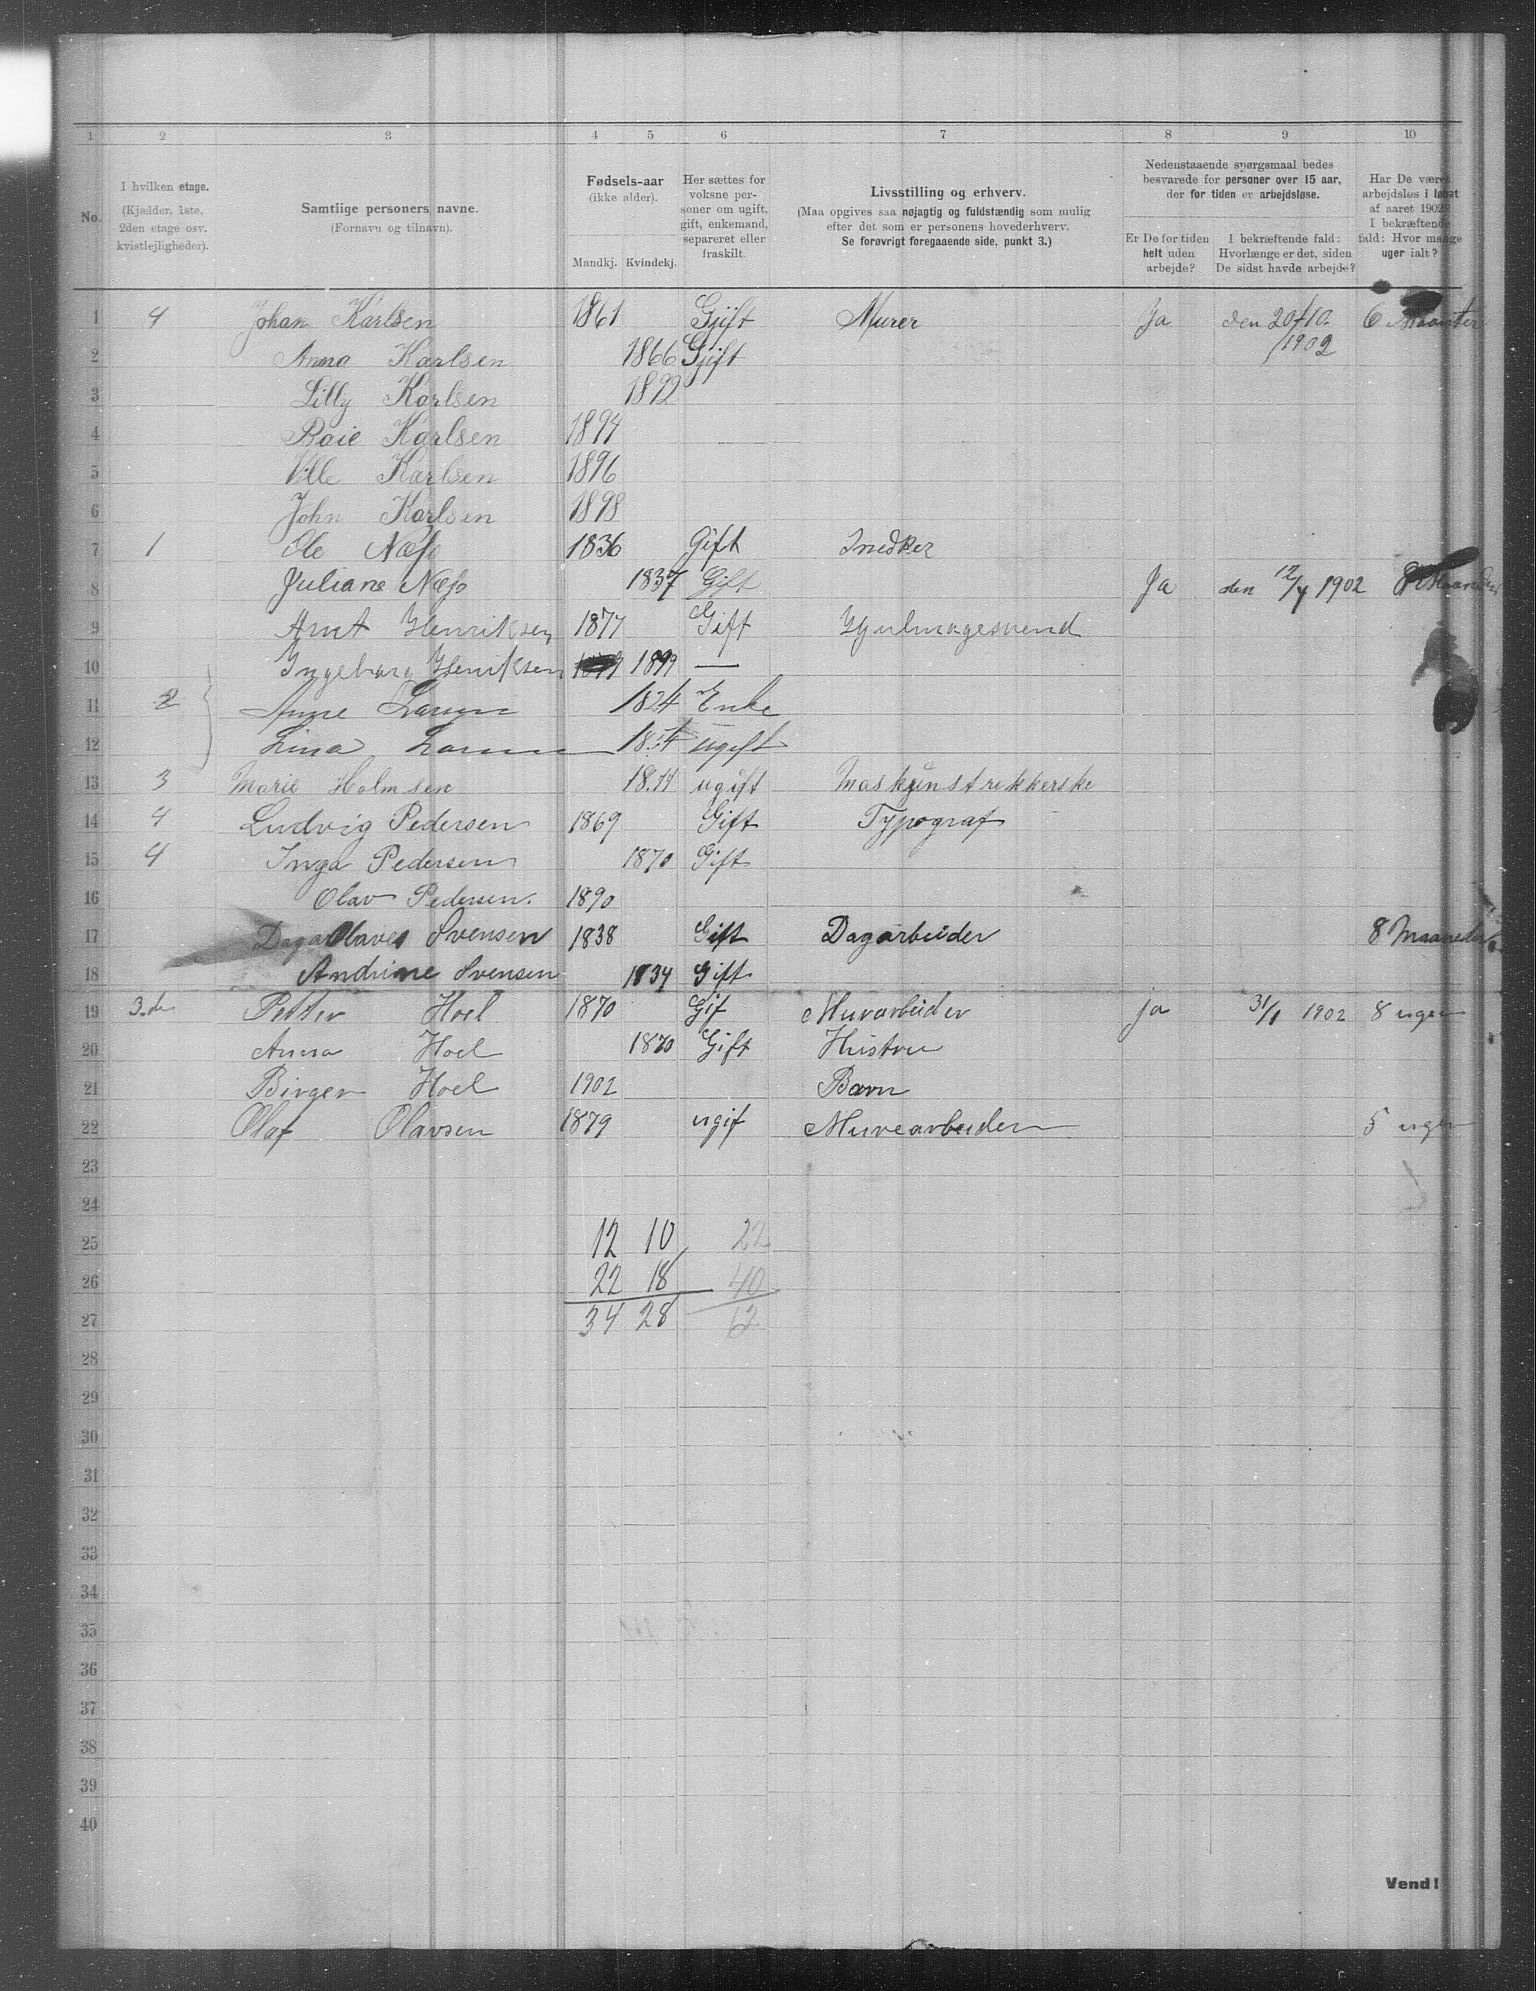 1 2 3 4 5 6 7 8 9 10
No.
I hvilken etage. (Kjælder, 1ste, 2den etage osv. kvistlejligheder).
Samtlige personers navne. (Fornavn og tilnavn).
Fødsels-aar (ikke alder).
Mandkj. Kvindekj.
Her sættes for voksne personer om ugift, gift, enkemand, separeret eller fraskilt.
Livsstilling og erhverv. (Maa opgives saa nøjagtig og fuldstændig som mulig efter det som er personens hovederhverv. Se forøvrigt foregaaende side, punkt 3.)
Nedenstaaende spørgsmaal bedes besvarede for personer over 15 aar, der for tiden er arbejdsløse.
Er De for tiden helt uden arbejde?
I bekræftende fald: Hvorlænge er det, siden De sidst havde arbejde?
Har De været arbejdsløs i løbet af aaret 1902? I bekræftende fald: Hvor mange uger ialt?
1 4 Johan Karlsen 1861 Gjift Murer Ja den 20/10. 6
/1902
2 Anna Karlsen 1866 Gjift
3 Lilly Karlsen 1892
4 Karlsen 1894
5 Ville Karlsen 1896
6 John Karlsen 1898
7 1 Ole Næss 1836 Gift Snedker
8 Juliane Næss 1837 Gift Ja den 12/4 1902 8
9 Arnt Henriksen 1877 Gift Hjulmagesvend
10 Ingeborg Henriksen 1899 —
11 2 Anne Larsen 1824 Enke
12 Lina Larsen 1854 ugift
13 3 Marie Holmsen ugift Maskinstrikkerske
14 4 Ludvig Pedersen 1869 Gift Typograf
15 4 Inga Pedersen 1870 Gift
16 Olav Pedersen. 1890
17 Olaves Svensen 1838 Gift Dagarbeider 8 Maaneder
18 Andrine Svensen 1834 Gift
19 3.de Petter Hoel 1870 Gif Murarbeider ja 31/1 1902 8 uger
20 Anna Hoel 1870 Gift Hustru
21 Birger Hoel 1902 Barn
22 Olaf Olavsen 1879 ugif Murearbeider 5 uger
23
24
25 12 10 22
26 22 18 40
27 34 28 62
28
29
30
31
32
33
34
35
36
37
38
39
40
Vend!